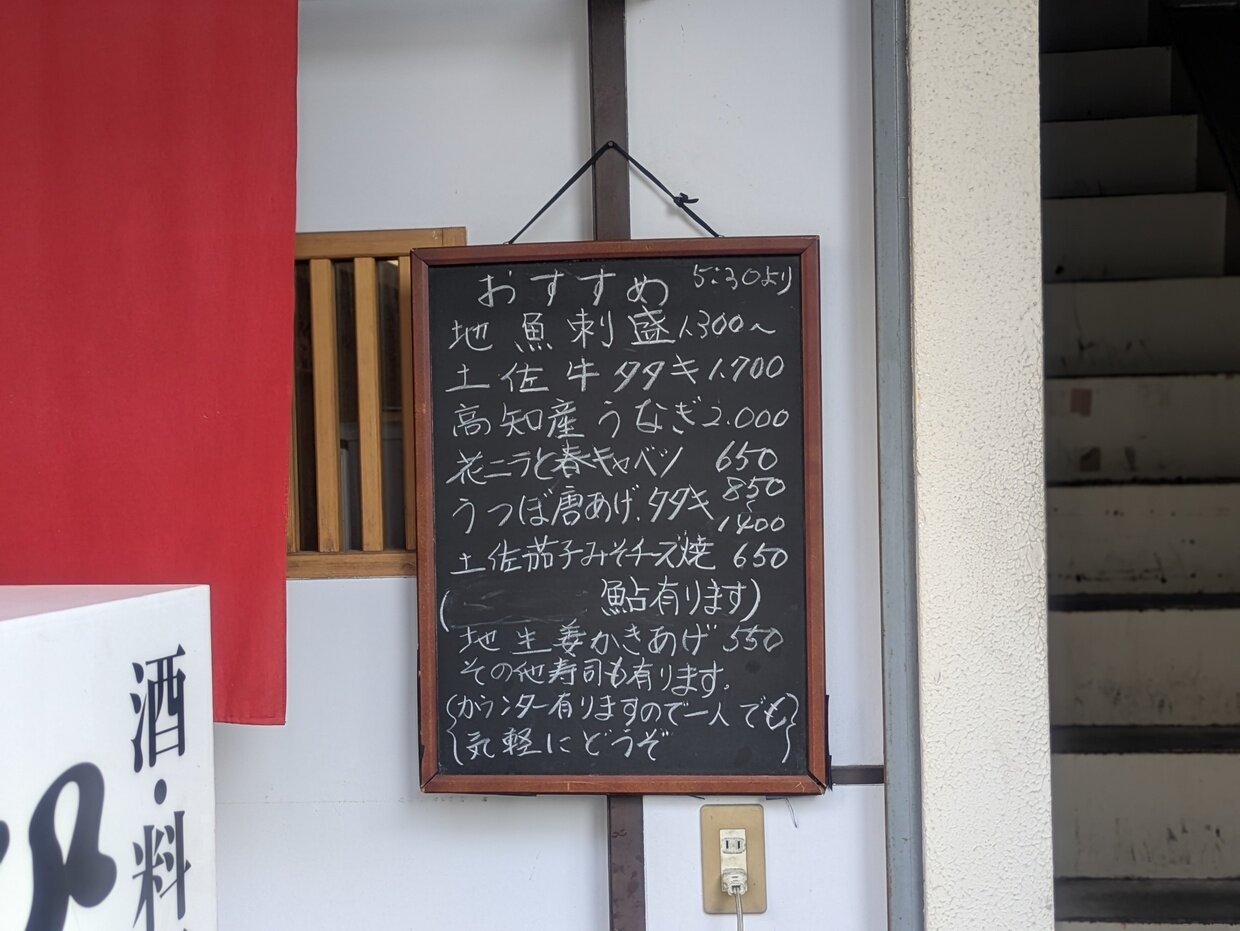 おすすめ 5:30より
地魚刺盛 1.300〜
土佐牛タタキ 1.700
高知産うなぎ 2.000
花ニラと春キャベツ 650
うつぼ唐あげ、タタキ 850〜1400
土佐茄子みそチーズ焼 650
(鮎有ります)
地生姜かきあげ 550
その他寿司も有ります。
(カウンター有りますので一人でも
気軽にどうぞ)
酒・料